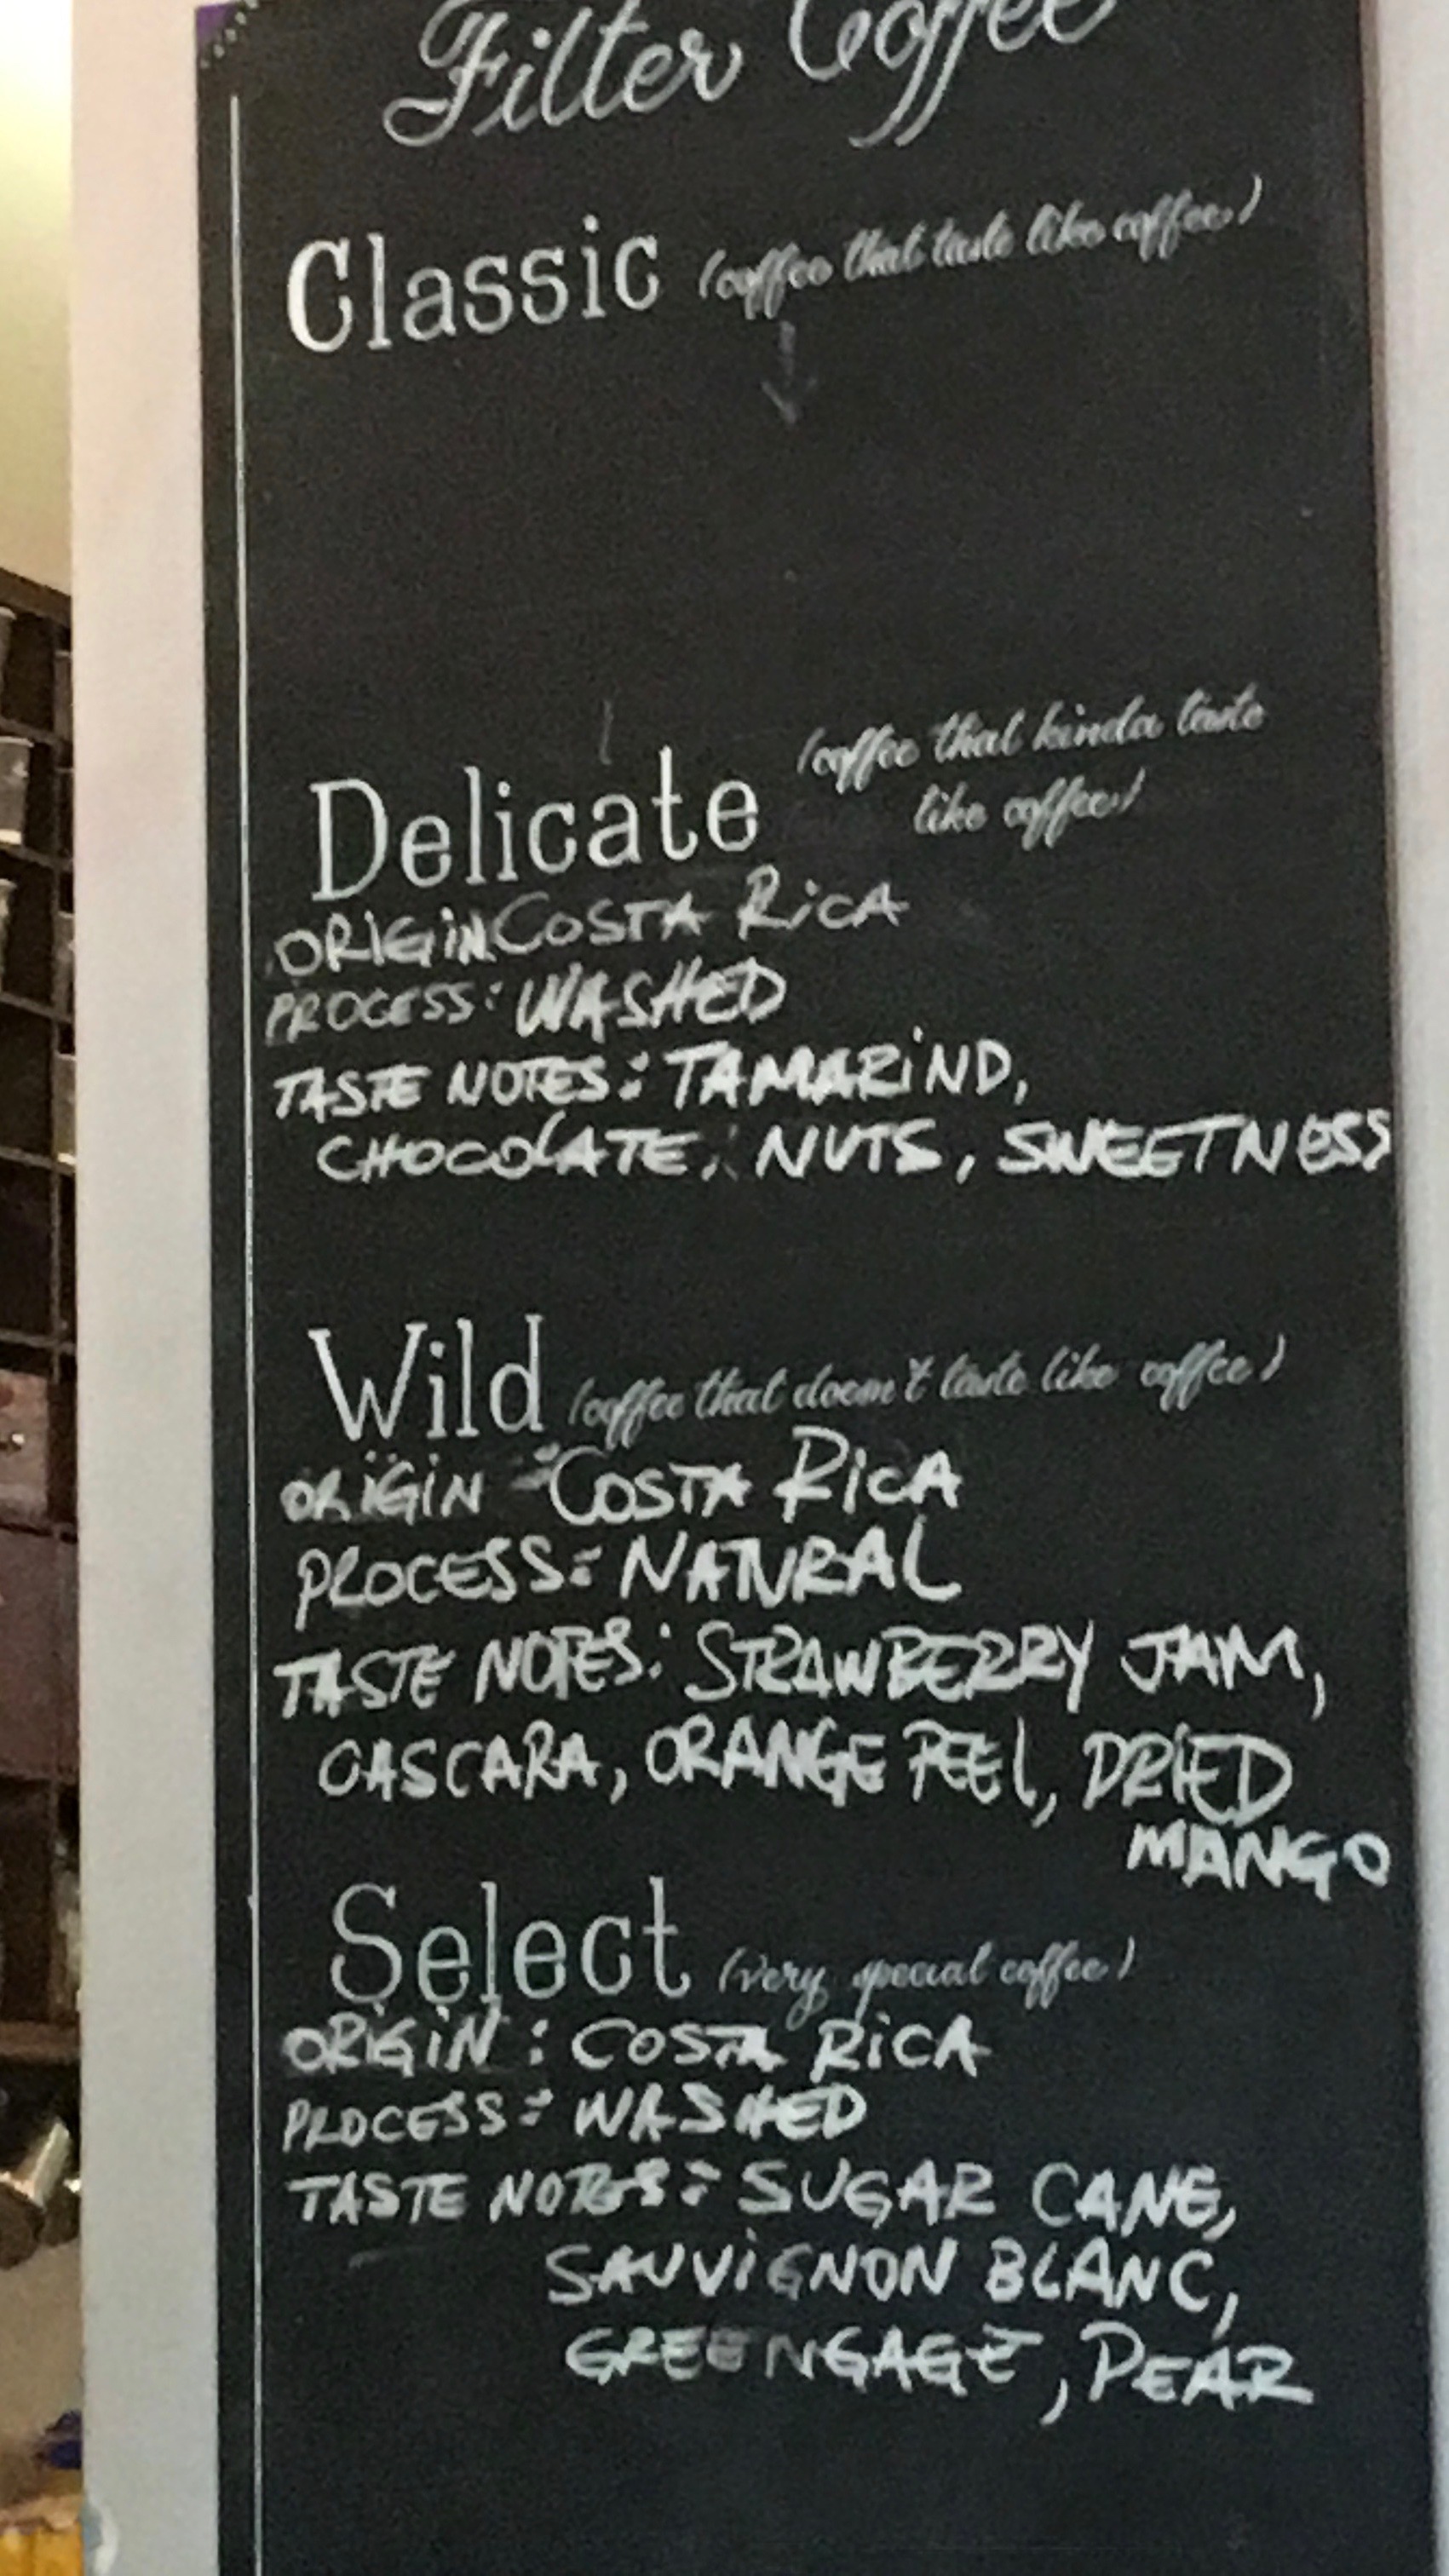 Filter Coffee
Classic (coffee that taste like coffee)
Delicate (coffee that kinda taste
like coffee)
ORIGIN COSTA RICA
PROCESS: WASHED
TASTE NOTES: TAMARIND,
CHOCOLATE, NUTS, SWEETNESS
Wild (coffee that doesn't taste like coffee)
ORIGIN COSTA RICA
PROCESS: NATURAL
TASTE NOTES: STRAWBERRY JAM,
CASCARA, ORANGE PEEL, DRIED
MANGO
Select (very special coffee)
ORIGIN: COSTA RICA
PROCESS: WASHED
TASTE NOTES: SUGAR CANE,
SAUVIGNON BLANC,
GREENGAGE, PEAR